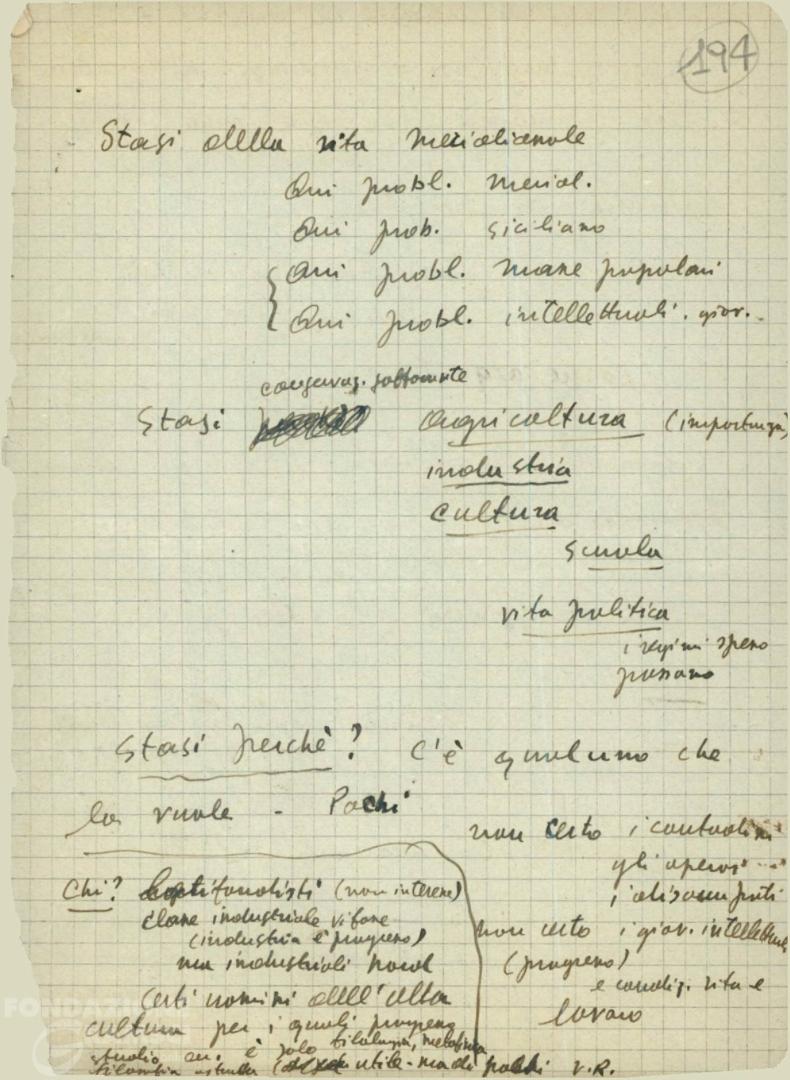 194
Stasi della vita meridionale
Qui probl. merid.
Qui prob. siciliano
Qui probl. masse popolari
Qui probl. intellettuali. giov.
conservaz. sottomiste
Stasi agricoltura (importanza)
industria
cultura
scuola
vita politica
i regimi spesso
passano
Stasi perchè? C'è qualcuno che
la vuole - Pochi
non certo i contadini
gli operai
i disoccupati
non certo i giov. intellettuali
(progresso)
e condiz. vita e
lavoro
Chi? latifondisti (non interesse)
classe industriale
(industria è progresso)
ma industriali nord
Certi uomini dell'alta
cultura per i quali progresso
studio, è solo filologia, metafisica
filosofia astratta utile - ma di pochi V.R.
FONDAZI